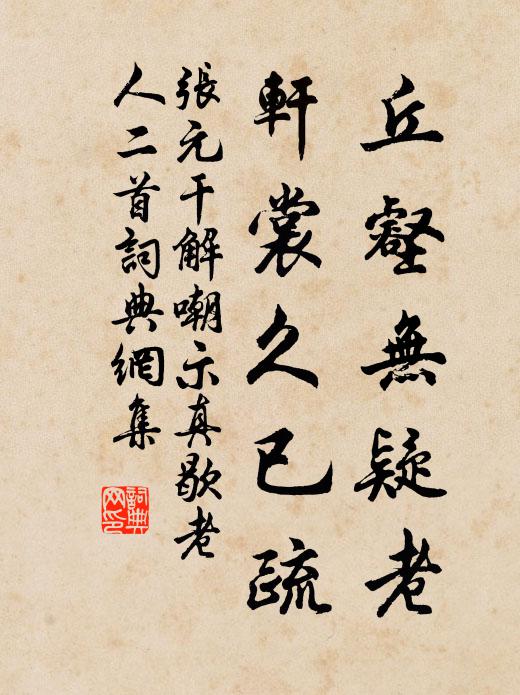 丘壑無疑老
軒裳久已疏
張元干解嘲示真歇老
人二首詞典網集
詞典
网印